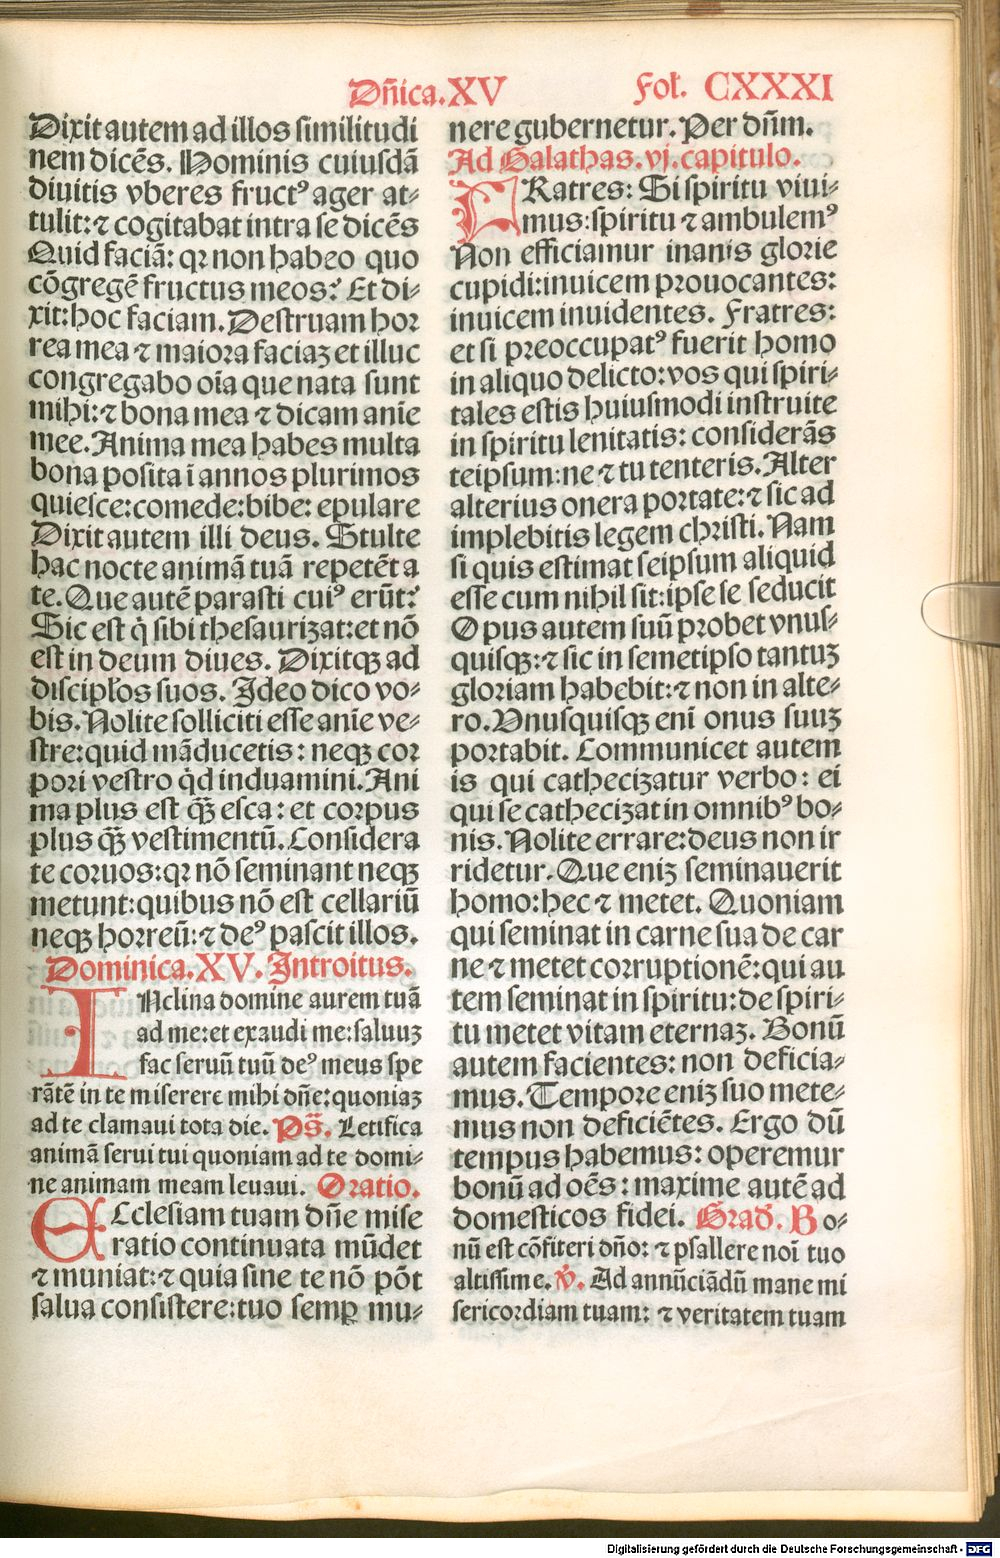 Dñica.XV Fol. CXXXI
Dixit autem ad illos similitudi
nem dicẽs. Hominis cuiusdã
diuitis vberes fructꝰ ager at⸗
tulit: ⁊ cogitabat intra se dicẽs
Quid faciã: qꝛ non habeo quo
cõgregẽ fructus meos? Et di⸗
xit: hoc faciam. Destruam hoꝛ
rea mea ⁊ maioꝛa faciaꝫ et illuc
congregabo oĩa que nata sunt
mihi: ⁊ bona mea ⁊ dicam anĩe
mee. Anima mea habes multa
bona posita ĩ annos plurimos
quiesce: comede: bibe: epulare
Dixit autem illi deus. Stulte
hac nocte animã tuã repetẽt a
te. Que autẽ parasti cuiꝰ erũt?
Sic est q̇ sibi thesaurizat: et nõ
est in deum diues. Dixitqꝫ ad
discipłos suos. Ideo dico vo⸗
bis. Nolite solliciti esse anĩe ve⸗
stre: quid mãducetis: neqꝫ coꝛ
poꝛi vestro q̇d induamini. Ani
ma plus est q̃ꝫ esca: et coꝛpus
plus q̃ꝫ vestimentũ. Considera
te coꝛuos: qꝛ nõ seminant neqꝫ
metunt: quibus nõ est cellariũ
neqꝫ hoꝛreũ: ⁊ deꝰ pascit illos.
Dominica.XV. Introitus.
INclina domine aurem tuã
ad me: et exaudi me: saluuꝫ
fac seruũ tuũ deꝰ meus spe
rãtẽ in te miserere mihi dñe: quoniaꝫ
ad te clamaui tota die. Ps̃. Letifica
animã serui tui quoniam ad te domi⸗
ne animam meam leuaui. Oratio.
ECclesiam tuam dñe mise
ratio continuata mũdet
⁊ muniat: ⁊ quia sine te nõ põt
salua consistere: tuo semꝑ mu⸗
nere gubernetur. Per dñm.
Ad Galathas. vj. capitulo.
FRatres: Si spiritu viui⸗
mus: spiritu ⁊ ambulemꝰ
Non efficiamur inanis gloꝛie
cupidi: inuicem pꝛouocantes:
inuicem inuidentes. Fratres:
et si pꝛeoccupatꝰ fuerit homo
in aliquo delicto: vos qui spiri⸗
tales estis huiusmodi instruite
in spiritu lenitatis: considerãs
teipsum: ne ⁊ tu tenteris. Alter
alterius onera poꝛtate: ⁊ sic ad
implebitis legem christi. Nam
si quis estimat seipsum aliquid
esse cum nihil sit: ipse se seducit
Opus autem suũ pꝛobet vnus⸗
quisqꝫ: ⁊ sic in semetipso tantuꝫ
gloꝛiam habebit: ⁊ non in alte⸗
ro. Vnusquisqꝫ enĩ onus suuꝫ
poꝛtabit. Communicet autem
is qui cathecizatur verbo: ei
qui se cathecizat in omnibꝰ bo⸗
nis. Nolite errare: deus non ir
ridetur. Que eniꝫ seminauerit
homo: hec ⁊ metet. Quoniam
qui seminat in carne sua de car
ne ⁊ metet coꝛruptionẽ: qui au
tem seminat in spiritu: de spiri⸗
tu metet vitam eternaꝫ. Bonũ
autem facientes: non deficia⸗
mus. Tempoꝛe eniꝫ suo mete⸗
mus non deficiẽtes. Ergo dũ
tempus habemus: operemur
bonũ ad oẽs: maxime autẽ ad
domesticos fidei. Grad̃. Bo⸗
nũ est cõfiteri dño: ⁊ psallere noĩ tuo
altissime. v̇. Ad annũciãdũ mane mi
sericoꝛdiam tuam: ⁊ veritatem tuam
Digitalisierung gefördert durch die Deutsche Forschungsgemeinschaft - DFG